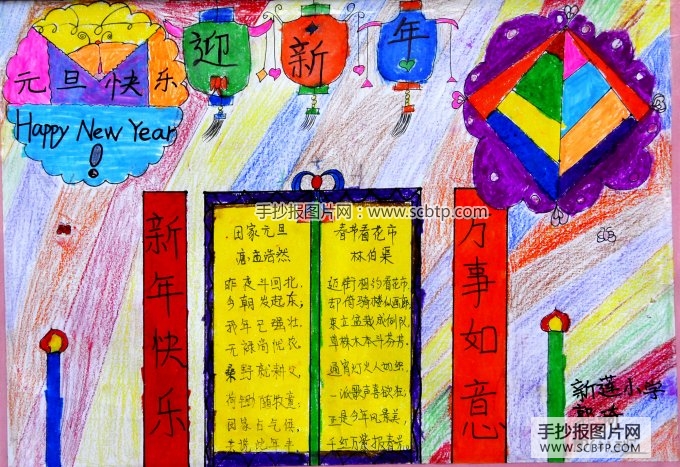 迎 新 年
元旦快乐
Happy New Year
!
手抄报图片网:www.scbtp.com
新年快乐
田家元旦
唐.孟浩然
昨夜斗回北,
今朝岁起东;
已强壮,
无禄尚忧农.
桑野就耕父,
荷锄随牧童,
田家占气候,
共说此年丰
春节看花市
林伯渠
迈街相约看花市,
却倚骑楼似画廊,
束立盆栽成
草株木本斗芬芳,
通宵灯火人如织,
一派歌声喜欲狂,
正是今年风景美,
千红万紫报春光.
万事如意
新莲小学
手抄报图片网
WWW.SCBTP.COM